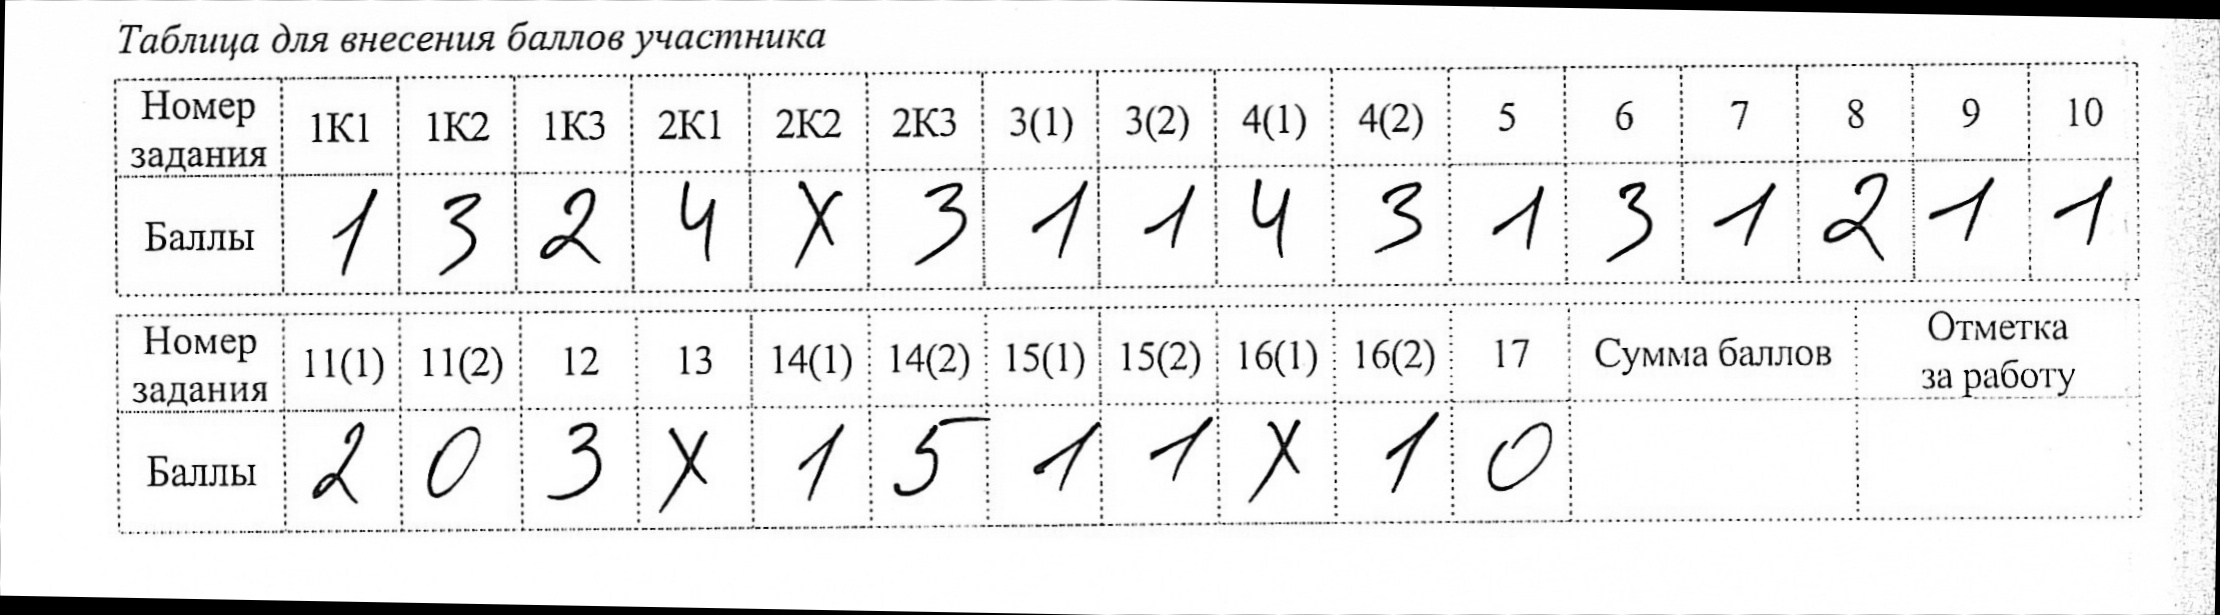 Таблица для внесения баллов участника
Номер задания 1К1 1К2 1К3 2К1 2К2 2К3 3(1) 3(2) 4(1) 4(2) 5 6 7 8 9 10
Баллы 1 3 2 4 X 3 1 1 4 3 1 3 1 2 1 1
Номер задания 11(1) 11(2) 12 13 14(1) 14(2) 15(1) 15(2) 16(1) 16(2) 17 Сумма баллов Отметка за работу
Баллы 2 0 3 X 1 5 1 1 X 1 0